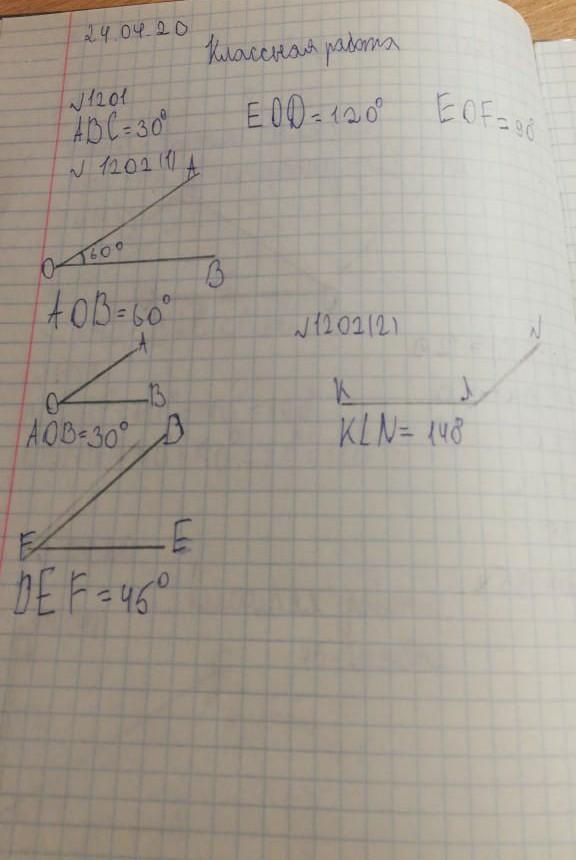 24.04.20
Классная работа
№1201
ABC=30° EOD=120° EOF=90
№ 1202(1)
A
60°
O
B
AOB=60°
№1202(2)
A
N
O
B
K
Л
AOB=30°
KLN= 148
D
F
E
DEF=45°